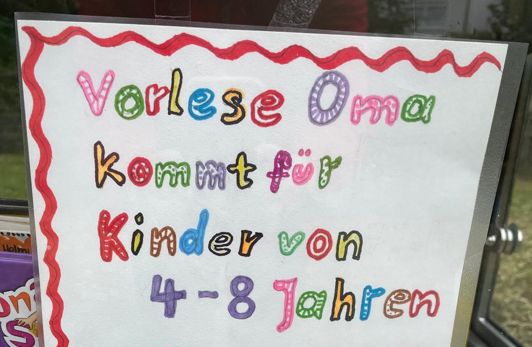 Vorlese Oma
kommt für
Kinder von
4-8 Jahren